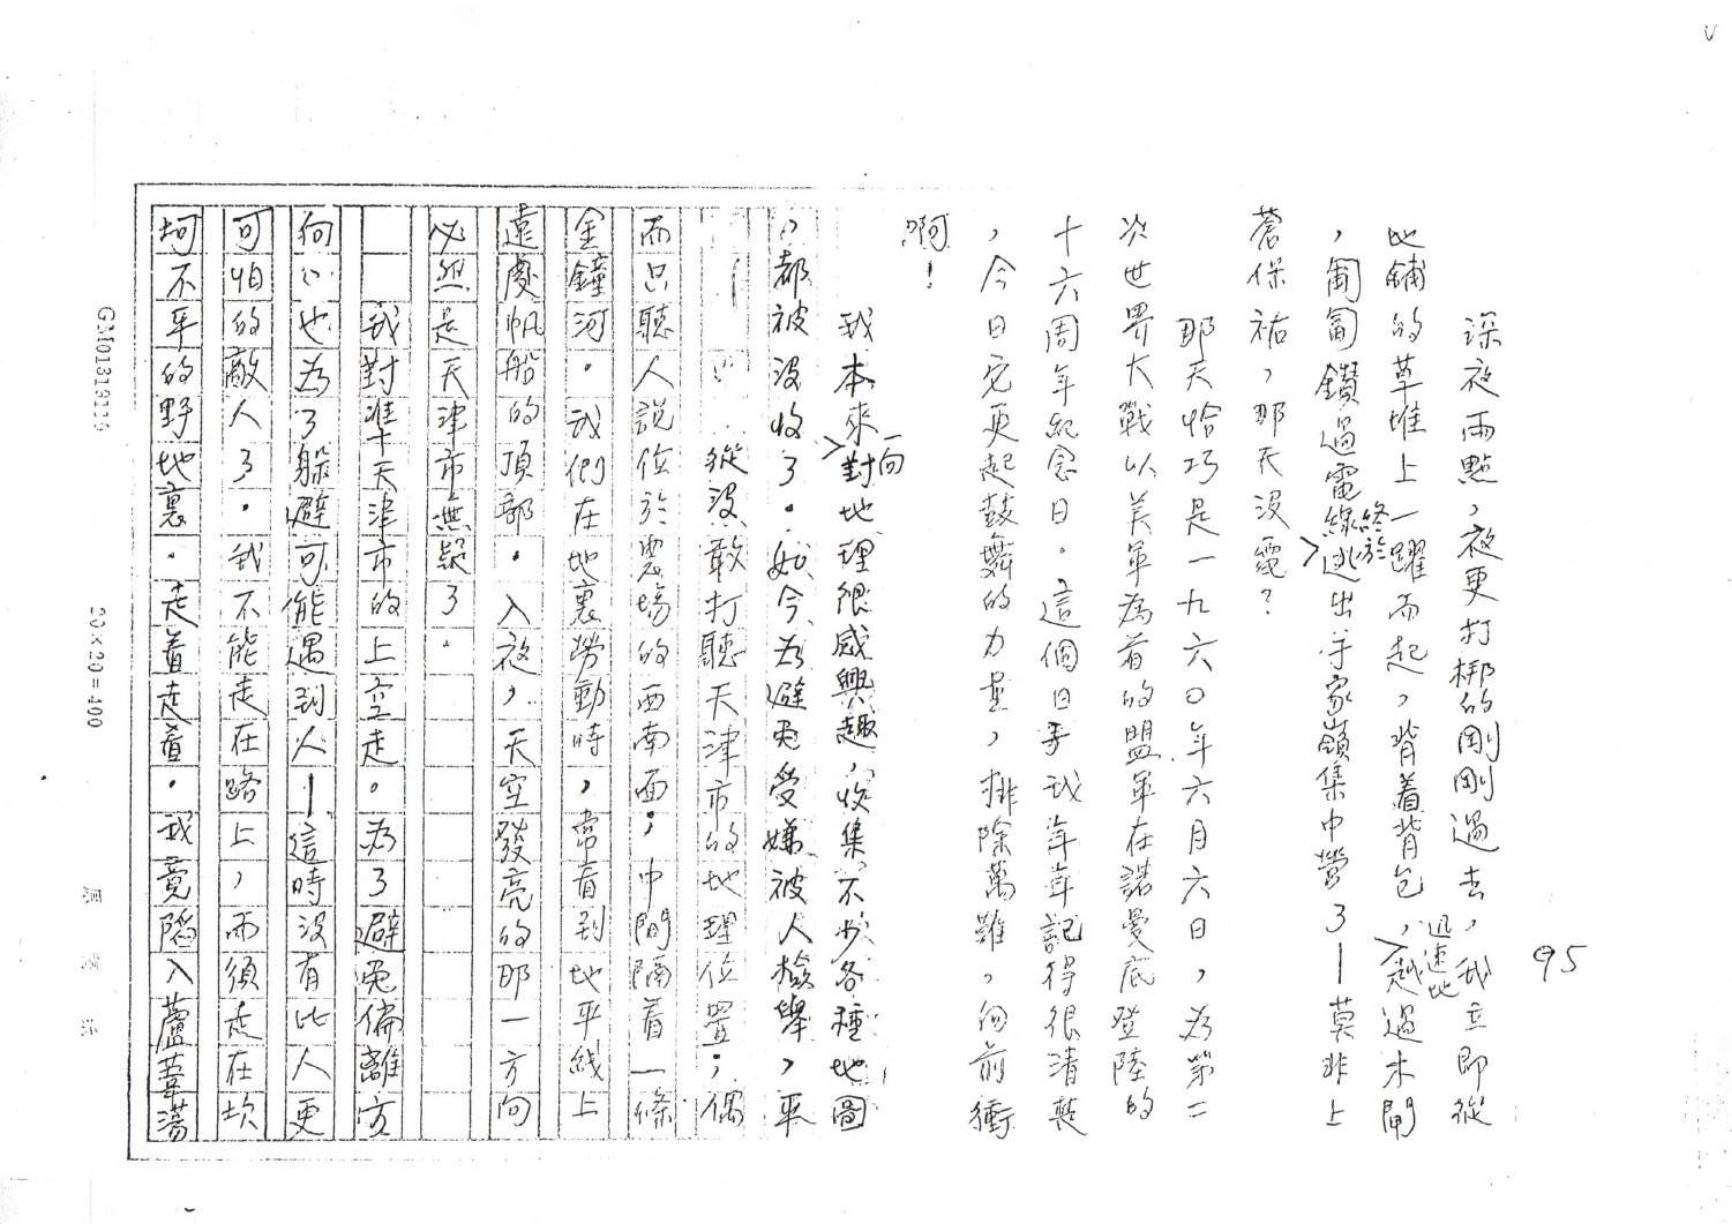 95
深夜兩點，夜更打梆的剛剛過去，我立即從
地鋪的草堆上一躍而起，背着背包，迅速地越過木閘
，匍匐鑽過電線終於逃出于家嶺集中營了—莫非上
蒼保祐，那天沒電？
那天恰巧是一九六〇年六月六日，為第二
次世界大戰以美軍為首的盟軍在諾曼底登陸的
十六周年紀念日。這個日子我年年記得很清楚
，今日它更起鼓舞的力量，排除萬難，向前衝
啊！
我本來一向對地理很感興趣，收集不少各種地圖
，都被沒收了。如今為避免受嫌被人檢舉，平
從沒敢打聽天津市的地理位置；偶
而只聽人說位於農場的西南面，中間隔着一條
金鐘河。我們在地裏勞動時，常看到地平线上
遠處帆船的頂部。入夜，天空發亮的那一方向
必然是天津市無疑了。
我對準天津市的上空走。為了避免偏離方
向，也為了躲避可能遇到人—這時沒有比人更
可怕的敵人了。我不能走在路上，而須走在坎
坷不平的野地裏。走着走着。我竟陷入蘆葦蕩
20×20=400